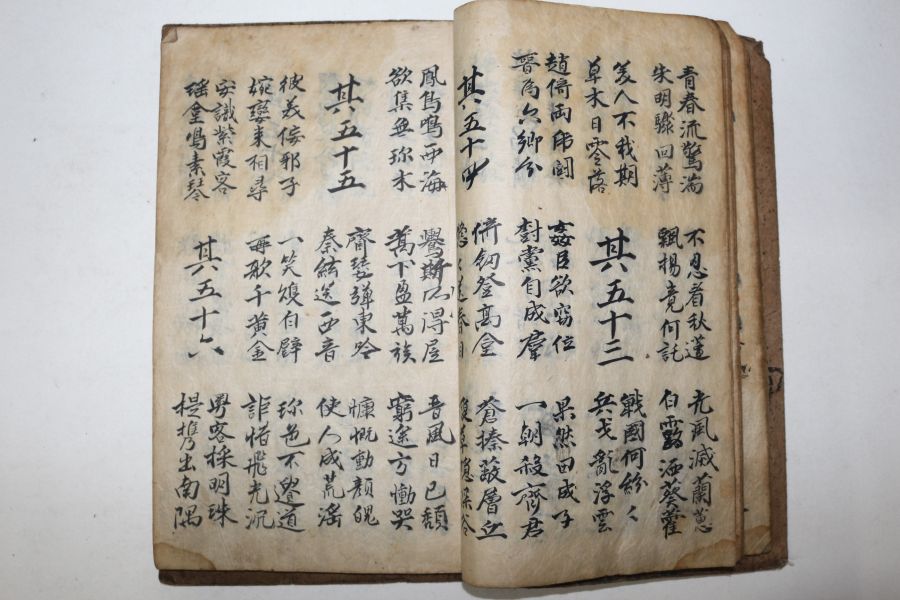 青春流驚湍
朱明驟回薄
不忍看秋蓬
飄揚竟何託
光風滅蘭蕙
白露洒葵藿
美人不我期
草木日零落
其五十三
戰國何紛〻
兵戈亂浮雲
趙倚兩虎鬪
晋為六卿分
姦臣欲窃位
樹黨自成羣
果然田成子
一朝殺齊君
其五十四
倚釰登高堂
送春目
蒼榛蔽層丘
草隱深谷
鳳鳥鳴西海
欲集無珎木
鸒斯所得居
蒿下盈萬族
晋風日已頹
窮途方慟哭
其五十五
齊瑟彈東吟
秦絃送西音
慷慨動顏魄
使人成荒滛
彼美佞邪子
婉孌来相尋
一笑雙白璧
再歌千黃金
珎色不貴道
詎惜飛光沉
安識紫霞客
瑶臺鳴素琴
其五十六
粤客採明珠
提携出南隅